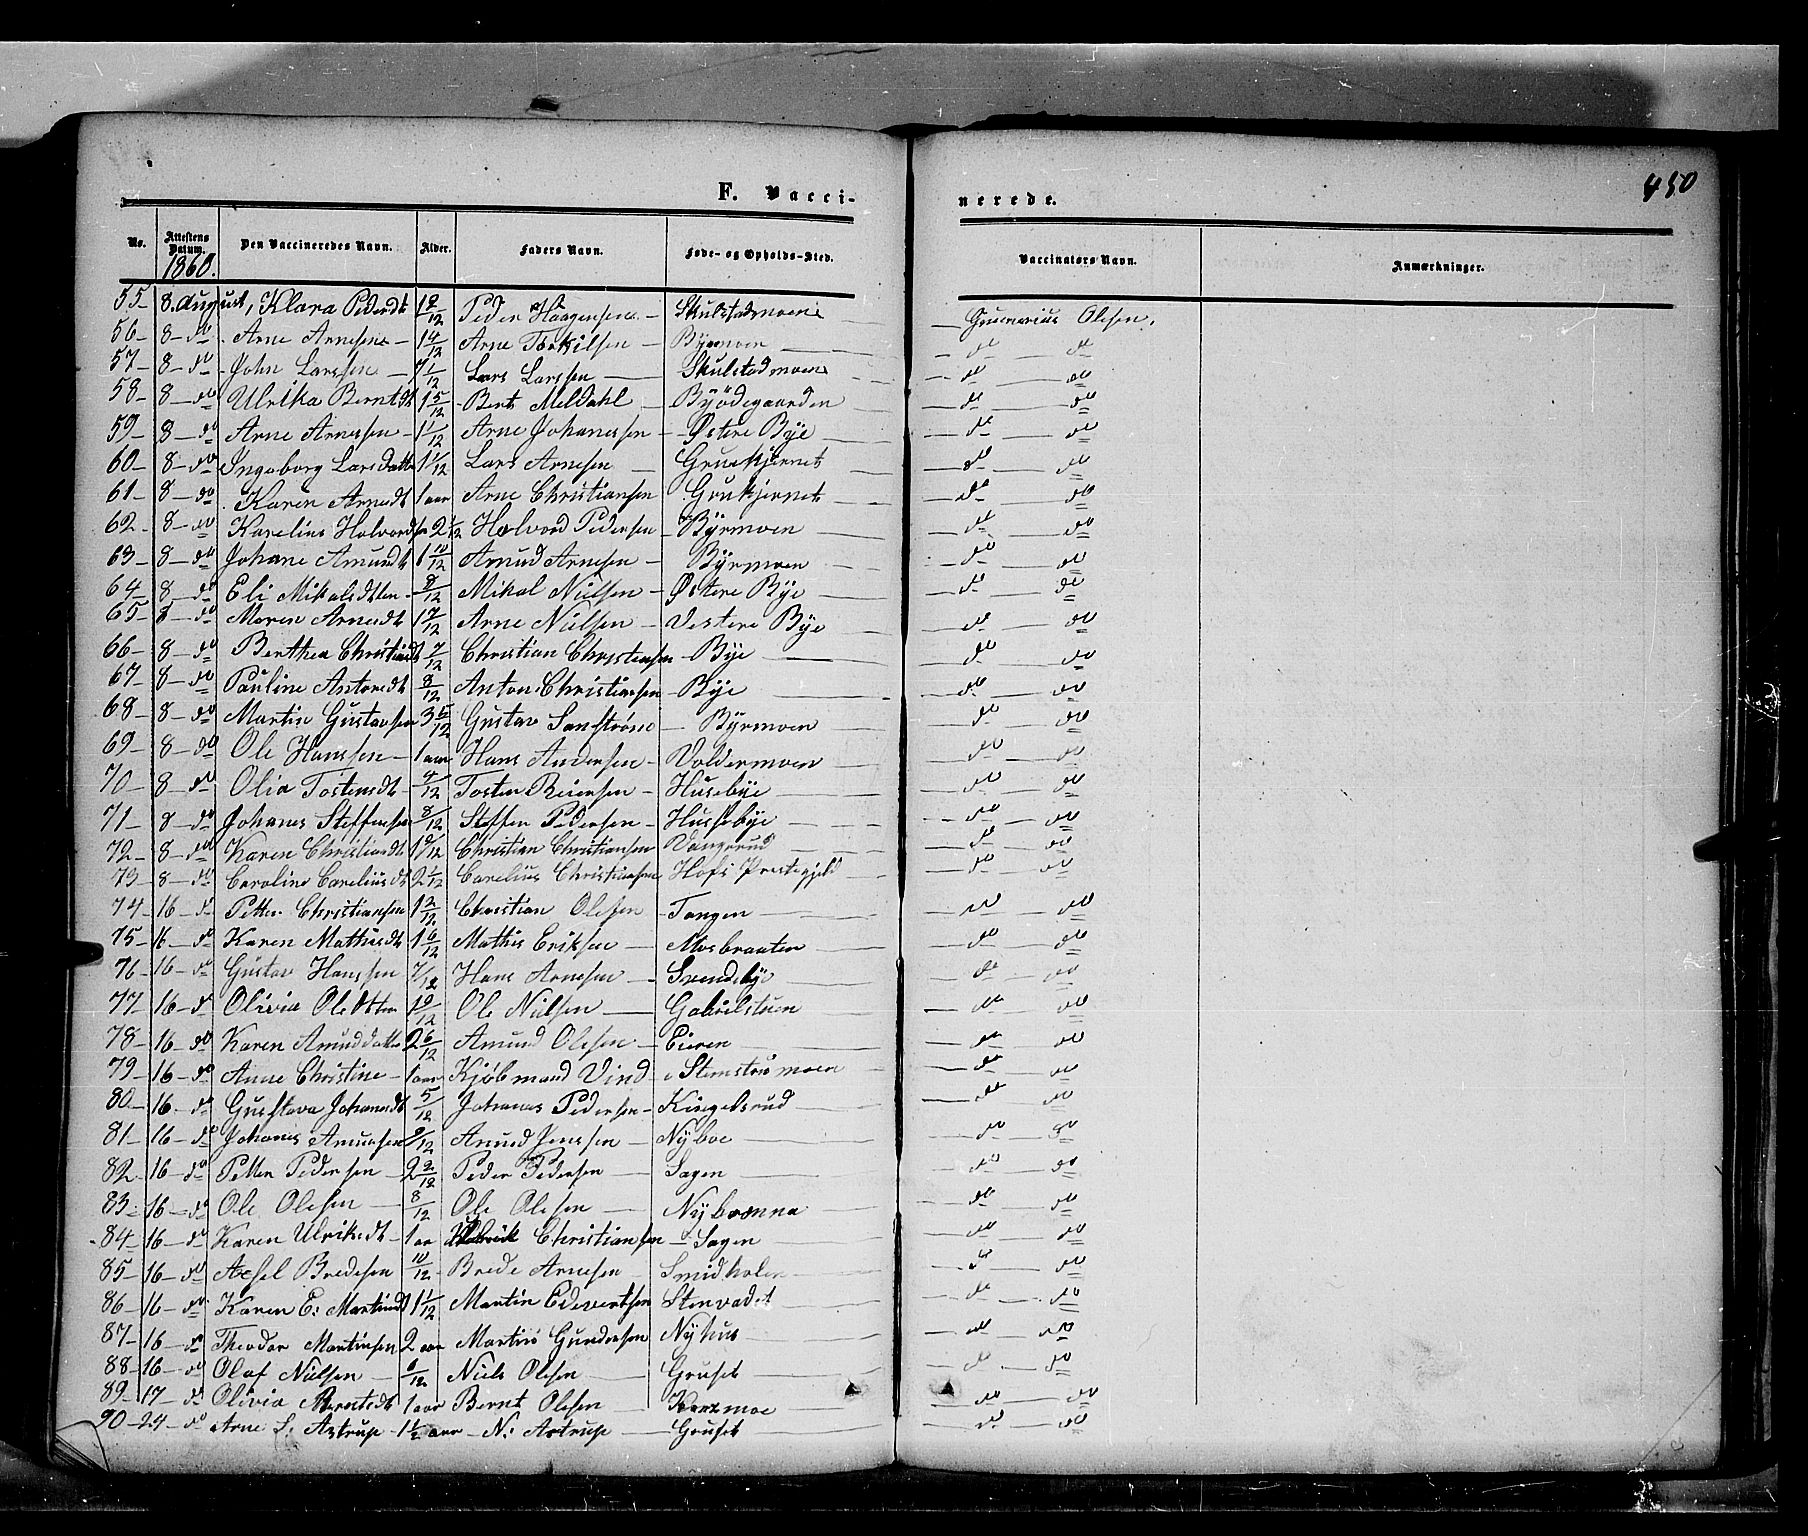 450
F. Vacci- nerede.
No. Attestens Datum. Den Vaccineredes Navn. Alder. Faders Navn. Føde- og Opholds-Sted. Vaccinatørs Navn. Anmærkninger.
1860.
55 - 8. August, Klara Pedersdt 1 9/12 Peder Haagensen - Skulstadmoen - Gunnerius Olesen.
56 - 8 - do Arne Arnesen - 1 4/12 Arne Torkilsen - Byrmoen - do - do
57 - 8 - do John Larssen - 7 1/12 Lars Larssen - Skulstadmoen - do - do
58 - 8 - do Ulrika Berntdt 1 5/12 Bert Meldahl - Byødegaarden - do - do
59 - 8 - do Arne Arnessen - 1 1/12 Arne Johanessen - Østere Bye - do - do
60 - 8 - do Ingeborg Larsdatter 1 1/12 Lars Arnesen - Gruekjernet - do - do
61 - 8 - do Karen Arnedt 1 aar Arne Christiansen Grukjernet - do - do
62 - 8 - do Karelius Halvordsen 2 1/12 Halvord Pedersen - Byrmoen - do - do
63 - 8 - do Johane Amundt 1 10/12 Amud Arnesen - Byrmoen - do - do
64 - 8 - do Eli Mikalsdtten - 8/12 Mikal Nielsen - Østere Bye - do - do
65 - 8 - do Maren Arnedt 1 7/12 Arne Nielsen - Vestere Bye - do - do
66 - 8 - do Berthea Christiandt 7/12 Christian Christensen - Bye - do - do
67 - 8 - do Pauline Antondt 8/12 Anton Christiansen - Bye - do - do
68 - 8 - do Martin Gustavsen 3 5/12 Gustav Sanstrøm - Byrmoen - do - do
69 - 8 - do Ole Hanssen - 1 aar Hans Andersen - Voldermoen - do - do
70 - 8 - do Olia Tostensdt - 4/12 Tosten Reiersen - Husebye - do - do
71 - 8 - do Johanes Steffensen 8/12 Steffen Pedersen - Hussebye - do - do
72 - 8 - do Karen Christiandt 1 9/12 Christian Christiansen Vangerud - do - do
73 - 8 - do Caroline Careliusdt 2 1/12 Carelius Christiansen Hofs Prestegjeld - do - do
74 - 16 - do Petter Christiansen 1 2/12 Christian Olesen - Tangen - do - do
75 - 16 - do Karen Mathisdt 1 6/12 Mathis Eriksen - Mosbraaten - do - do
76 - 16 - do Gustav Hanssen 7/12 Hans Arnesen - Svendsbye - do - do
77 - 16 - do Olivia Oledtter 1 9/12 Ole Nielsen - Gabrielstuen - do - do
78 - 16 - do Karen Amuddatter 2 6/12 Amund Olesen - Eieren - do - do
79 - 16 - do Anne Christine - 1 aar Kjøbmand Vind - Stemstrømoen - do - do
80 - 16 - do Gustava Johannedt 5/12 Johanes Pedersen - Kingelsrud - do - do
81 - 16 - do Johanes Amundsen 9/12 Amund Jenssen - Nyboe - do - do
82 - 16 - do Petter Pedersen - 2 2/12 Peder Pedersen - Sagen - do - do
83 - 16 - do Ole Olesen - 8/12 Ole Olesen - Nybrænna - do - do
84 - 16 - do Karen Ulrikedt - 1 aar Ulrik Christiansen - Sagen - do - do
85 - 16 - do Axsel Bredesen 10/12 Brede Arnesen - Smidholen - do - do
86 - 16 - do Karen E: Martindt 1 1/12 Martin Edevertsen Stenvadet - do - do
87 - 16 - do Theodor Martinsen 2 aar Martin Gundersen Nyhuus - do - do
88 - 16 - do Olaf Nielsen - 6/12 Niels Olesen - Gruset - do - do
89 - 17 - do Olivia Berntsdt 1 aar Bernt Olesen - - do - do
90 - 24 - do Arne S. Astrup - 1 1/2 aar - N: Astrup - Gruset - do - do